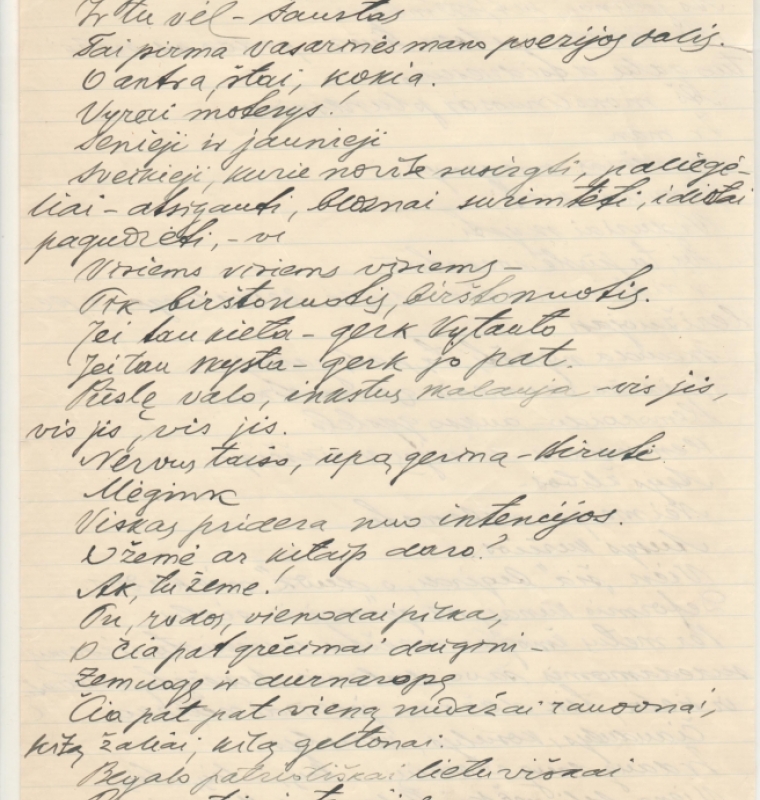 Ir tu vėl – saustas
Tai pirma vasarinės mano poezijos dalis.
O antra, štai, kokia.
Vyrai moterys!
Senieji ir jaunieji
Sveikieji, kurie norite susirgti, paliegė-
liai – atsigauti, bloznai surimtėti, idiotai
pagudrėti, – vi
Visiems visiems visiems –
Tik birštonuotis, birštonuotis.
Jei tau kieta – gerk Vytauto
Jei tau skysta – gerk jo pat.
Pūslę valo, inkstus skalauja – vis jis,
vis jis, vis jis.
Nervus taiso, ūpą gerina – Birutė
Mėgink
Viskas pridera nuo intencijos.
O žemė ar kitaip daro?
Ak, tu žeme!
Tu, rodos, vienodai pilka,
O čia pat grėcimai daigini –
Žemuogę ir durnaropę
Čia pat pat vieną nudažai raudonai,
kitą žaliai, kitą geltonai.
Begalo patriotiškai lietuviškai